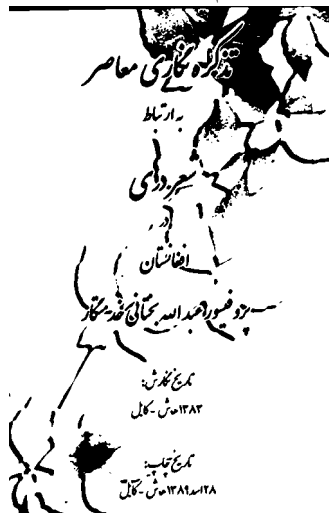 تذکره نگاری معاصر
به ارتباط
شعر دری
در
افغانستان
پروفیسور عبدالله بختانی خدمتگار
تاریخ نگارش:
۱۳۸۳ هـ ش - کابل
تاریخ چاپ:
۲۸ اسد ۱۳۸۹ هـ ش - کابل